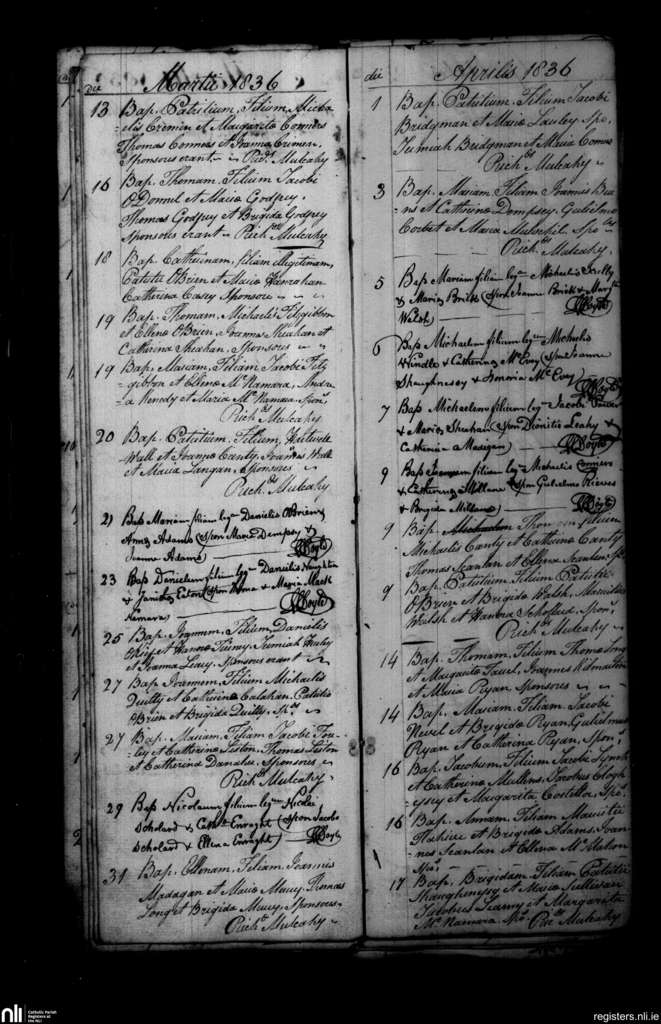 die Martii 1836
13 Bap. Patritium, Filium, Micha-
-elis Cremen et Margarita Connors
Thomas Connors et Joanna Cremen,
Sponsores erant - Richd. Mulcahy
16 Bap. Thomam, Filium Jacobi
O'Donnel et Maria Godfrey.
Thomas Godfrey et Brigida Godfrey
Sponsores erant - Richd. Mulcahy
18 Bap. Catherinam, filiam illegitimam,
Patritii O'Brien et Maria Hanrahan
Catherina Casey Sponsore
19 Bap. Thomam, Michaelis Fitzgibbon
et Ellena O'Brien, Joannes Sheahan et
Catherina Sheahan, Sponsores
19 Bap. Mariam, Filiam Jacobi Fitz
=gibbon et Ellena McNamara, Andre-
-a Kenedy et Maria McNamara Spons.
Richd. Mulcahy
20 Bap. Patritium, Filium,
Wall et Joanna Canty, Joannes Wall
et Maria Langan, Sponsores
Richd. Mulcahy
21 Bap Mariam filiam legam Danielis O'Brien &
Anna Adams (Spon Maria Dempsey &
Joanna Adams) Boyle
23 Bap Danielem filium legum Danielis Naughton
& Eaton (Spon & Maria Mack
Namara) Boyle
25 Bap. Joannem, Filium, Danielis
et Hanna Jeremiah
et Joanna Leary, Sponsores erant
27 Bap. Joannem, Filium Michaelis
Quilty et Catherina Calahan, Patritio
O'Brien et Brigida Quilty, Sprs
27 Bap. Mariam, Filiam Jacobi
et Catherina Liston, Thomas Liston
et Catherina Danaher, Sponsores
Richd. Mulcahy
29 Bap Nicolaum filium legum Nicolai
Scholard & Cathe Enright (Spon Jacobo
Scholard & Ellena Enright) Boyle
31 Bap. Ellenam, Filiam Joannis
Madagan et Maria Mauny, Thomas
Long et Brigida Mauny, Sponsores
Richd. Mulcahy
die Aprilis 1836
1 Bap. Patritium, Filium Jacobi
Bridgman et Maria Lawley Spo,
Jeremiah Bridgman et Maria Connors
Richd. Mulcahy
3 Bap. Mariam, Filiam Joannes
et Catherina Dempsey, Gulielmo
Corbet et Maria Spores
Richd. Mulcahy
5 Bap Mariam filiam legam Michaelis Scully
& Maria Brick (Spon Joanna Brick & Margta
Walsh) Boyle
6 Bap Michaelem filium legum Michaelis
Hindle & Catherina McEvoy (Spn Joanna
Shaughnessy & Honoria McEvoy) Boyle
7 Bap Michaelem filium legum Jacobi
& Maria Sheahan (Spon Dionitio Leahy &
Catherina Madigan) Boyle
9 Bap Joannem filium legum Michaelis Connors
& Catherina Mullane (Spon Gulielmo Nieves
& Brigida Mullane) Boyle
9 Bap. Thomam filium
Michaelis Canty et Catherina Canty
Thomas Scanlan et Ellena Scanlan Sps
9 Bap. Patritium, Filium Patritii
O'Brien et Brigida Walsh, Mauritius
Walsh et Hanora Schoffard, Spons,
Richd. Mulcahy
14 Bap. Thomam, Filium Thoma Long
et Margarita Joannes Kilmartin
et Maria Ryan Sponsores
14 Bap. Mariam, Filiam, Jacobi
Nevel et Brigida Ryan, Gulielmus
Ryan et Catherina Ryan, Spons,
16 Bap. Jacobum, Filium Jacobi Lynch
et Catherina Mullens, Jacobus Clogh
-essy et Margarita Costellos, Spo,
16 Bap. Annam, Filiam Mauritii
Flahive et Brigida Adams, Joan-
-nes Scanlan et Ellena McMahon
Spo,
17 Bap. Brigidam, Filiam Patritii
Shaughnessy et Maria Sullivan
Jacobus et Margarita
McNamara Spo. Richd. Mulcahy
nli Catholic Parish
Registers at
the NLI
registers.nli.ie